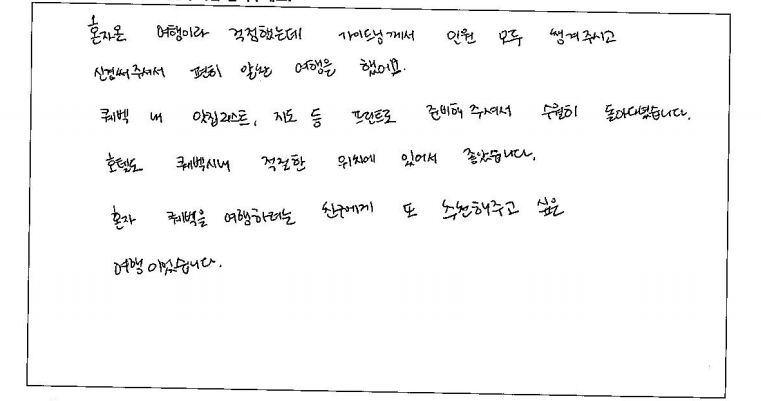 혼자온 여행이라 걱정했는데 가이드님께서 인원 모두 챙겨주시고
신경써주셔서 편히 알찬 여행을 했어요.
퀘벡 내 맛집리스트, 지도 등 프린트로 준비해주셔서 수월히 돌아다녔습니다.
호텔도 퀘벡시내 적절한 위치에 있어서 좋았습니다.
혼자 퀘벡을 여행하려는 친구에게 또 추천해주고 싶은
여행이었습니다.